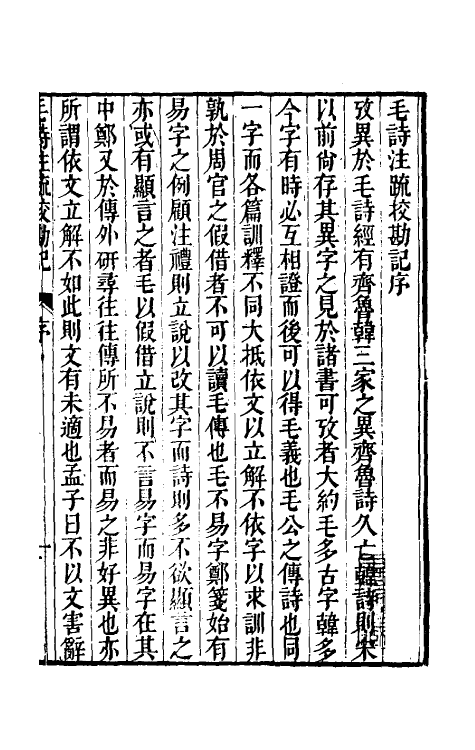 毛詩注疏挍勘記序
攷異於毛詩經有齊魯韓三家之異齊魯詩久亡韓詩則宋
以前尙存其異字之見於諸書可攷者大約毛多古字韓多
今字有時必互相證而後可以得毛義也毛公之傳詩也同
一字而各篇訓釋不同大抵依文以立解不依字以求訓非
孰於周官之假借者不可以讀毛傳也毛不易字鄭箋始有
易字之例顧注禮則立說以改其字而詩則多不欲顯言之
亦或有顯言之者毛以假借立說則不言易字而易字在其
中鄭又於傳外研尋往往傳所不易者而易之非好異也亦
所謂依文立解不如此則文有未適也孟子曰不以文害辭
毛詩注疏挍勘記 序 一